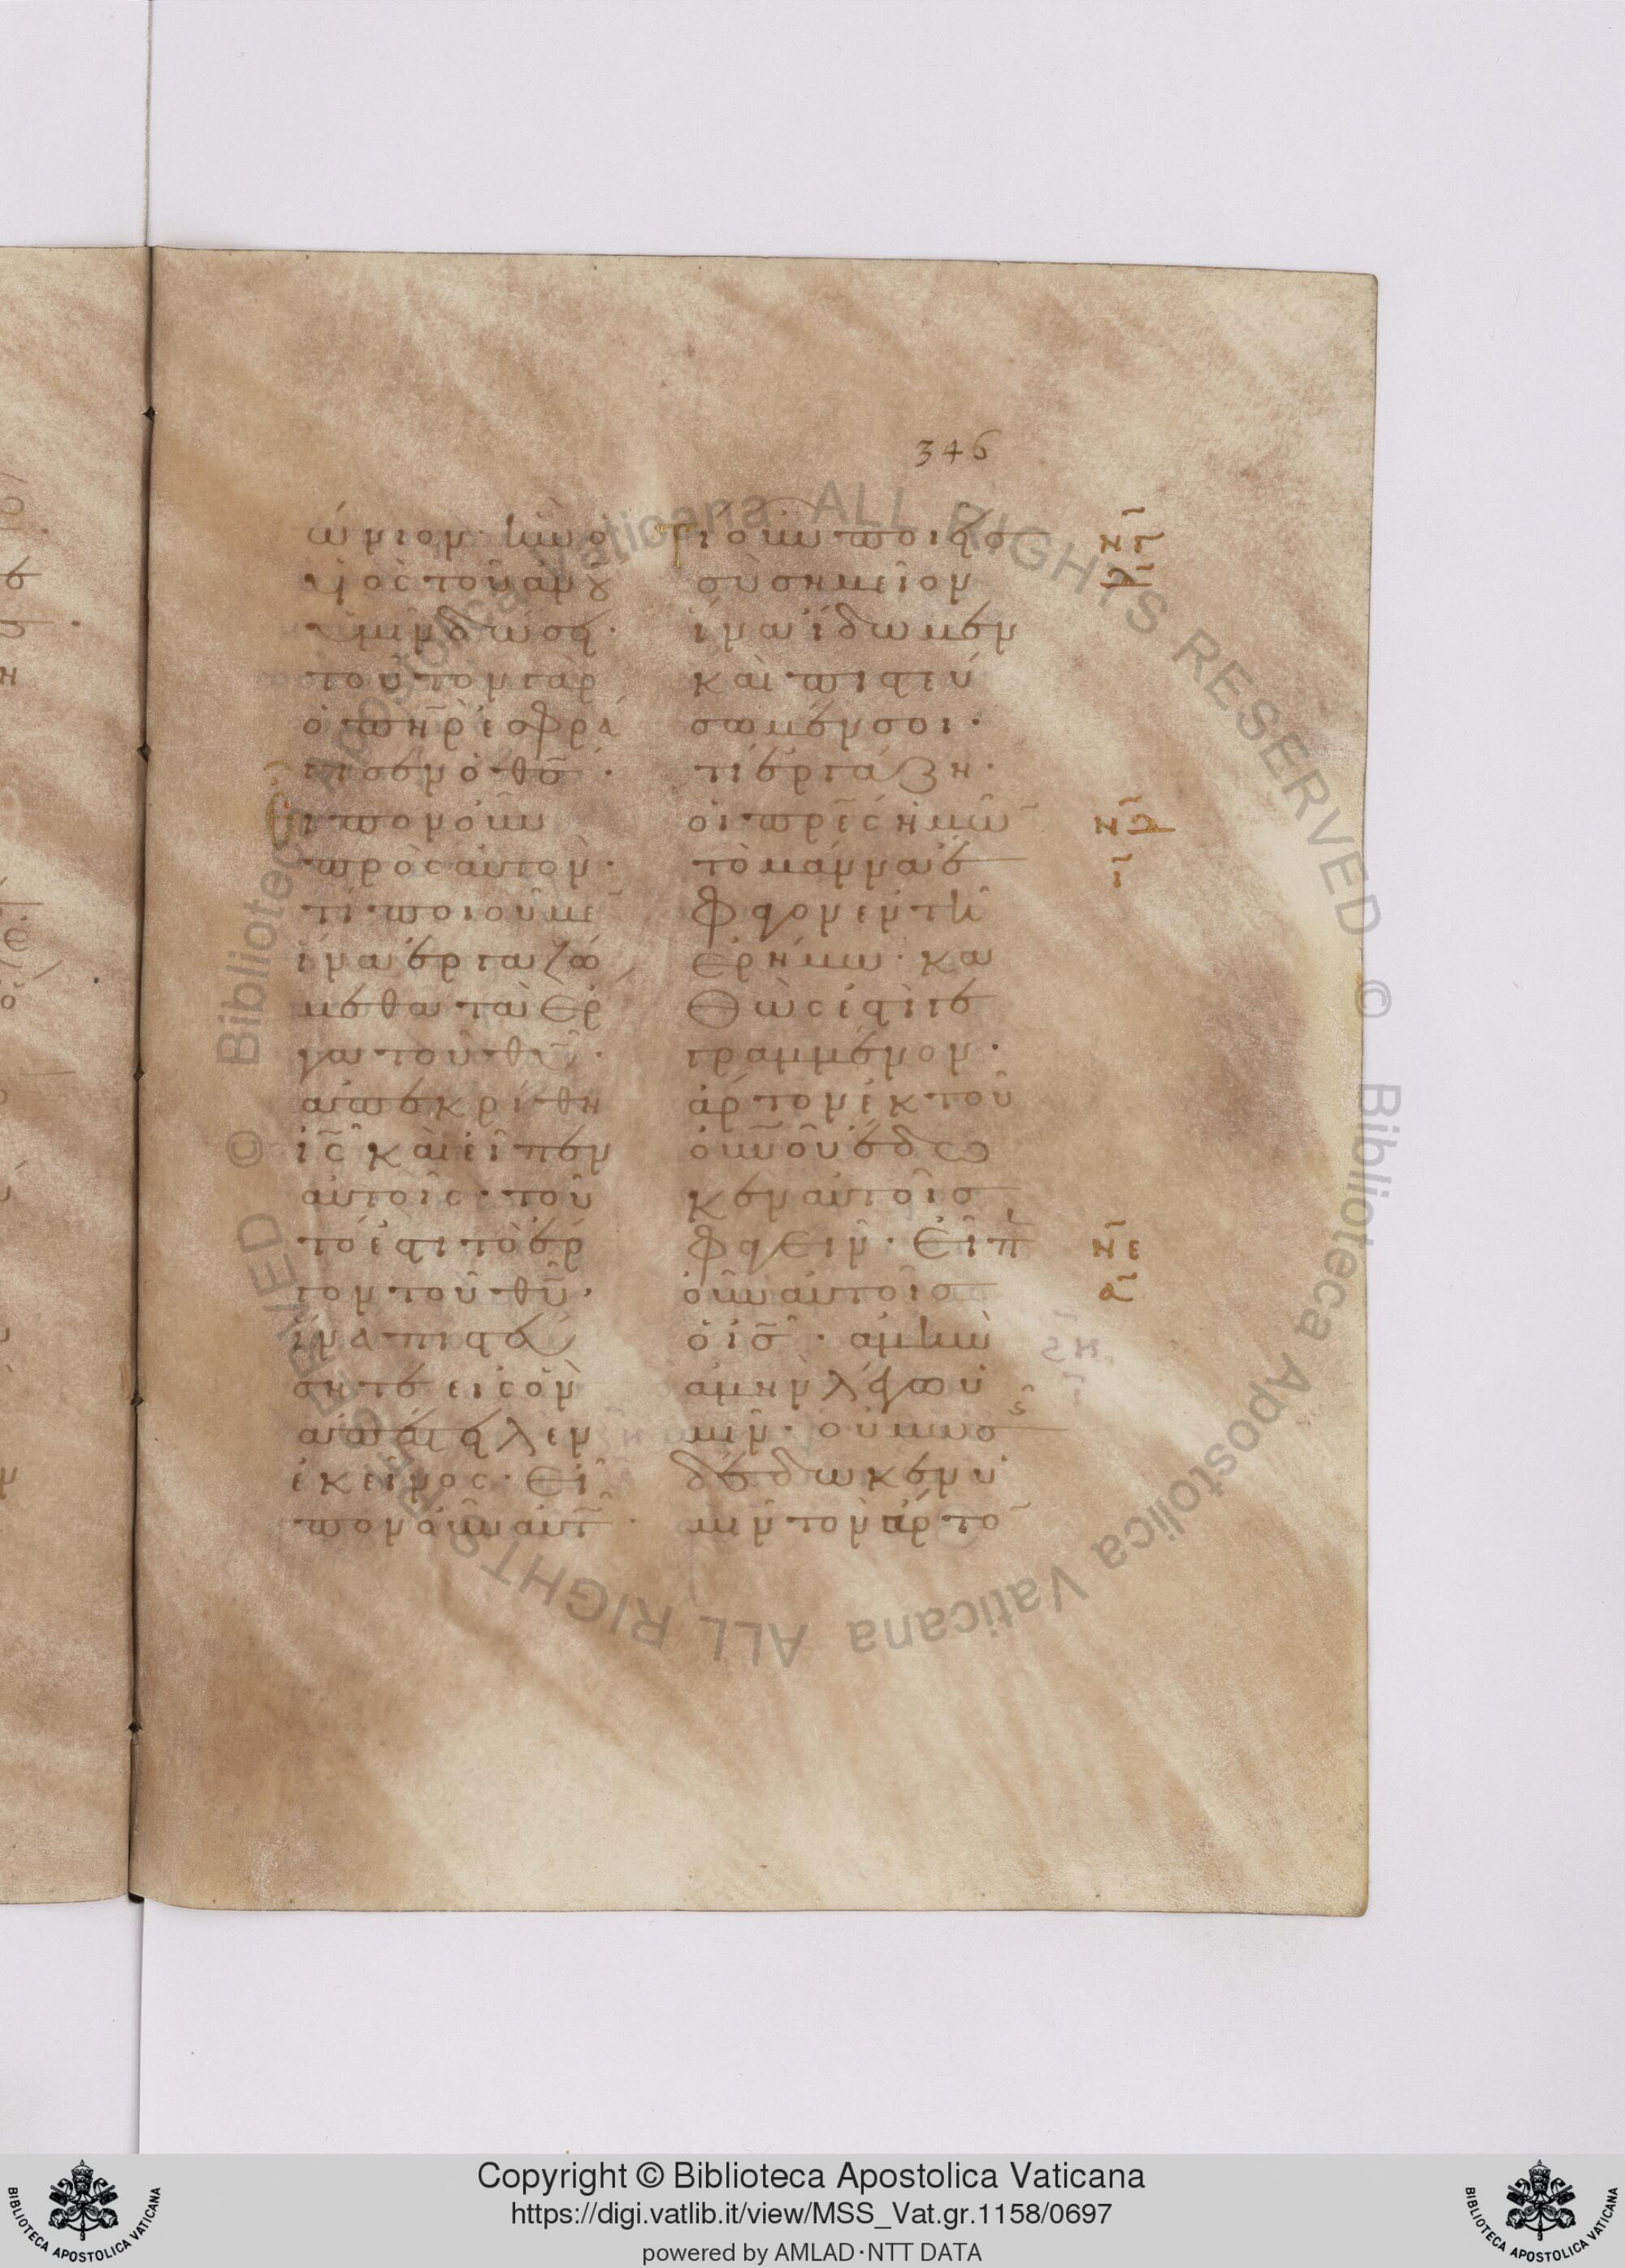 346
ώνιον· ἣν ὁ
υἱὸς τοῦ ἀνου
ὑμῖν δώσει·
τοῦτον γὰρ
ὁ πηρ ἐσφρά
γισεν ὁ θσ·
Εἶπον οὖν
πρὸς αὐτὸν·
τί ποιοῦμε
ἵνα ἐργαζώ
μεθα τὰ ἔρ
γα τοῦ θυ·
ἀπεκρίθη
ισ καὶ εἶπεν
αὐτοῖς· τοῦ
τό ἐστι τὸ ἔρ
γον τοῦ θυ·
ἵνα πιστεύ
σητε εἰς ὃν
ἀπέστειλεν
ἐκεῖνος· Εἶ
πον οὖν αὐτ·
Τί οὖν ποιεῖσ
σὺ σημεῖον
ἵνα ἴδωμεν
καὶ πιστεύ
σωμέν σοι·
τί ἐργάζη·
οἱ πρες ἡμῶ
τὸ μάννα ἔ
φαγον ἐν τῆ
ἐρήμω· κα
θώς ἐστι γε
γραμμένον·
ἄρτον ἐκ τοῦ
οὐνου ἔδω
κεν αὐτοῖσ
φαγεῖν· Εἶπ
οὖν αὐτοῖσ
ὁ ισ· ἀμὴν
ἀμὴν λέγω ὑ
μῖν· οὐ μωσ
δέδωκεν ὑ
μῖν τὸν ἄρτο
νη
νδ
ι
νε
α
Copyright © Biblioteca Apostolica Vaticana
https://digi.vatlib.it/view/MSS_Vat.gr.1158/0697
powered by AMLAD·NTT DATA
BIBLIOTECA APOSTOLICA VATICANA
BIBLIOTECA APOSTOLICA VATICANA
Biblioteca Apostolica Vaticana ALL RIGHTS RESERVED © Biblioteca Apostolica Vaticana ALL RIGHTS RESERVED ©